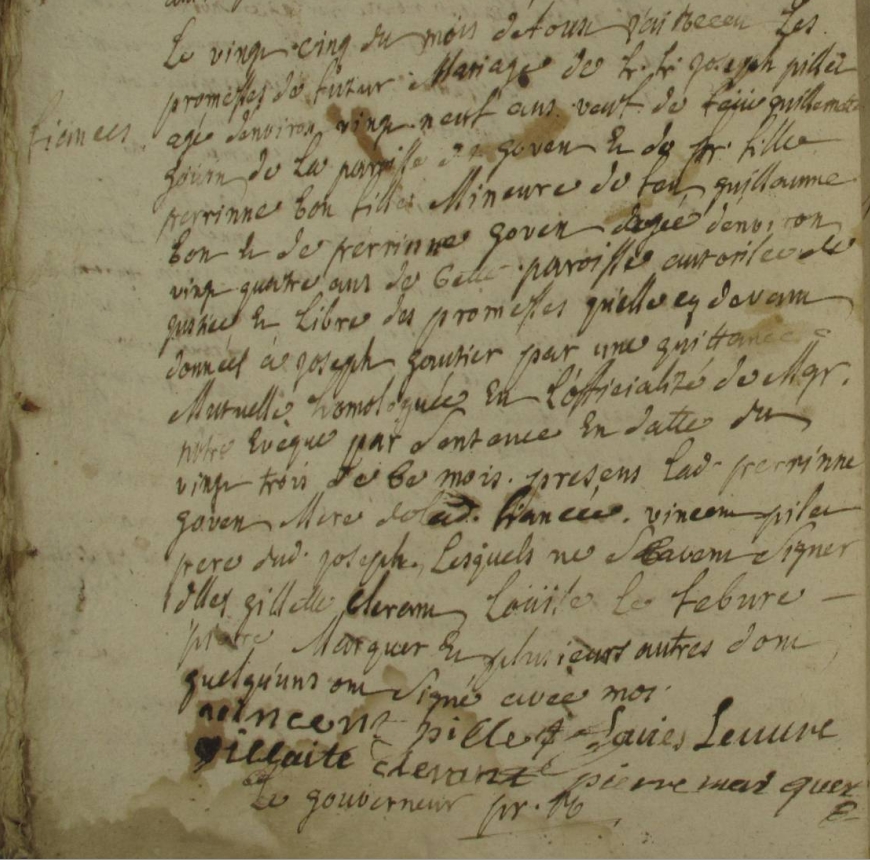 Le vingt cinq du mois d'aoust j'ai Receu Les
fiancés
promesses de futur Mariage de h. h. joseph pillet
agé d'environ vingt neuf ans veuf de feüe guillemette
gouin de La paroisse de goven Et de h. fille
perrinne bon fille Mineure de feu guillaume
bon Et de perrinne goven agée d'environ
vingt quatre ans de Cette paroisse autorisée de
justice Et Libre des promesses qu'elle eq devant
données a joseph gautier par une quittance
Mutuelle homologuée En L'officialité de Mgr.
notre Evêque par Sentence En datte du
vingt trois de Ce mois. presens Lad. perrinne
goven Mere de lad. fiancée. vincent pilet
pere dud. joseph, Lesquels ne Scavent Signer
dlles gillette Loüise Le febure
Marquer Et plusieurs autres dont
quelqu'uns ont Signé avec moi
vincent pillet Lecuvre
pierre mar quer
Le gouverneur pr.